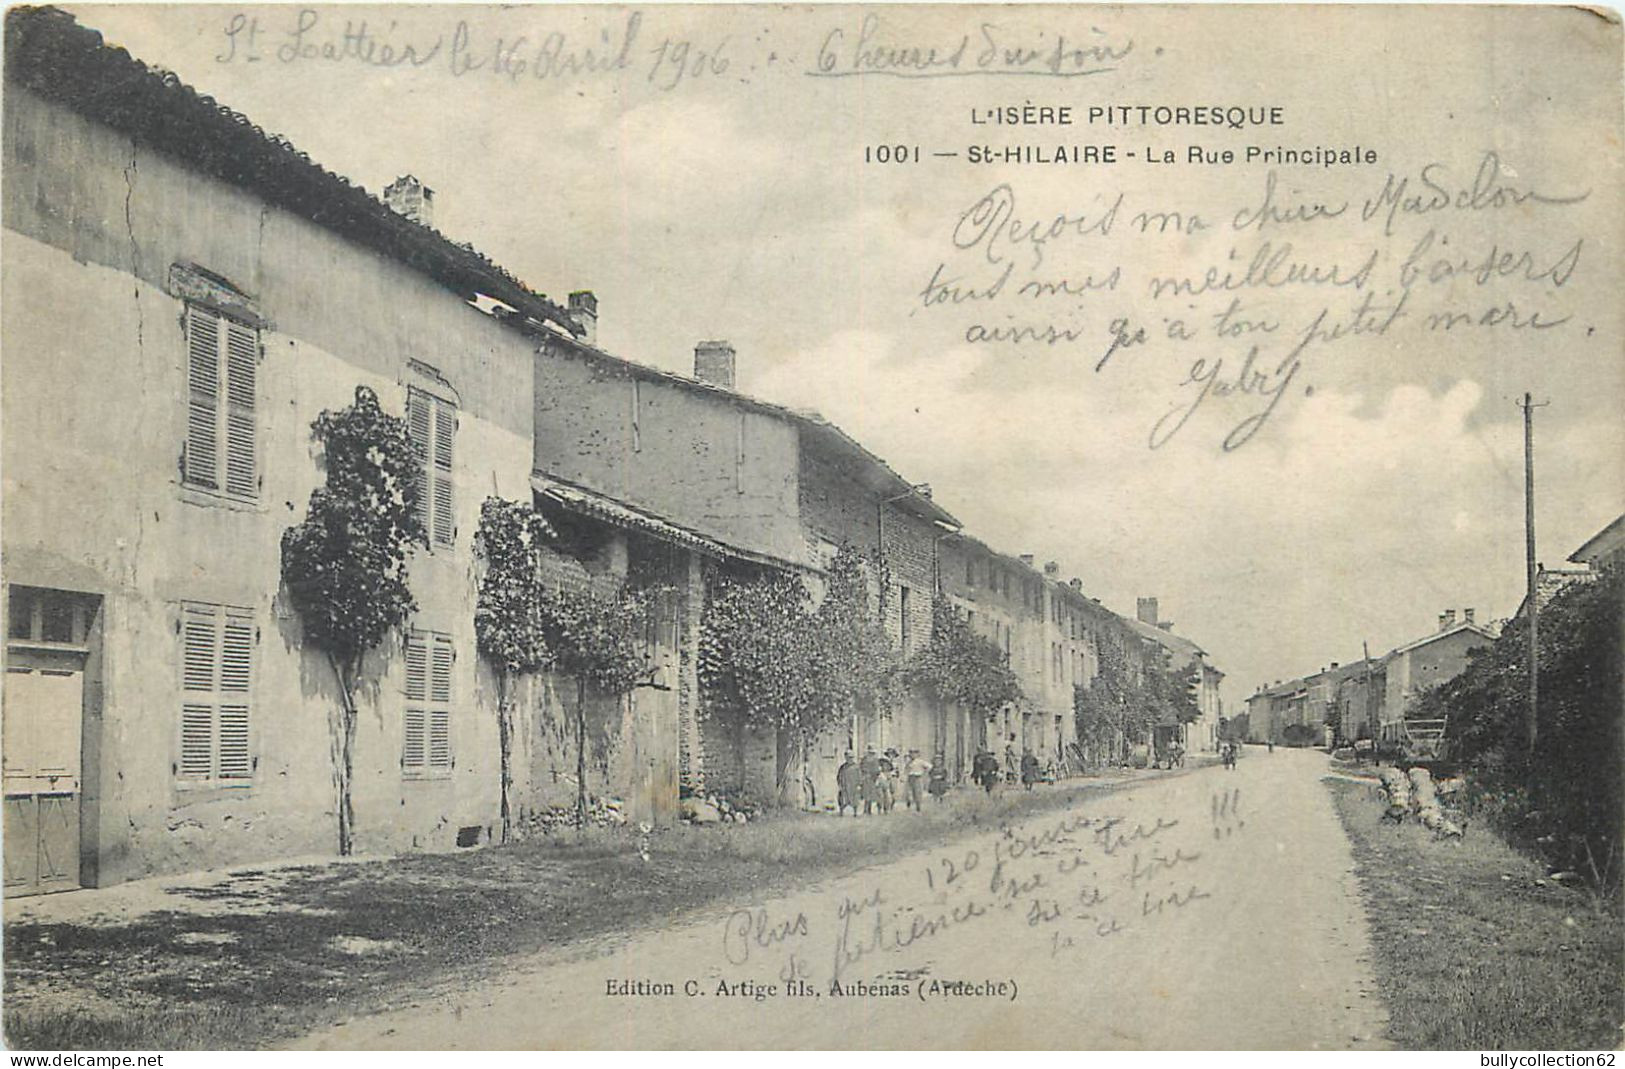 St Lattier le 16 Avril 1906. 6 heures du soir.
L'ISÈRE PITTORESQUE
1001 — St-HILAIRE - La Rue Principale
Reçois ma chère Madelon
tous mes meilleurs baisers
ainsi qu'à ton petit mari.
Gaby.
Plus que 120 jours
de patience
Edition C. Artige fils, Aubenas (Ardèche)
bullycollection62